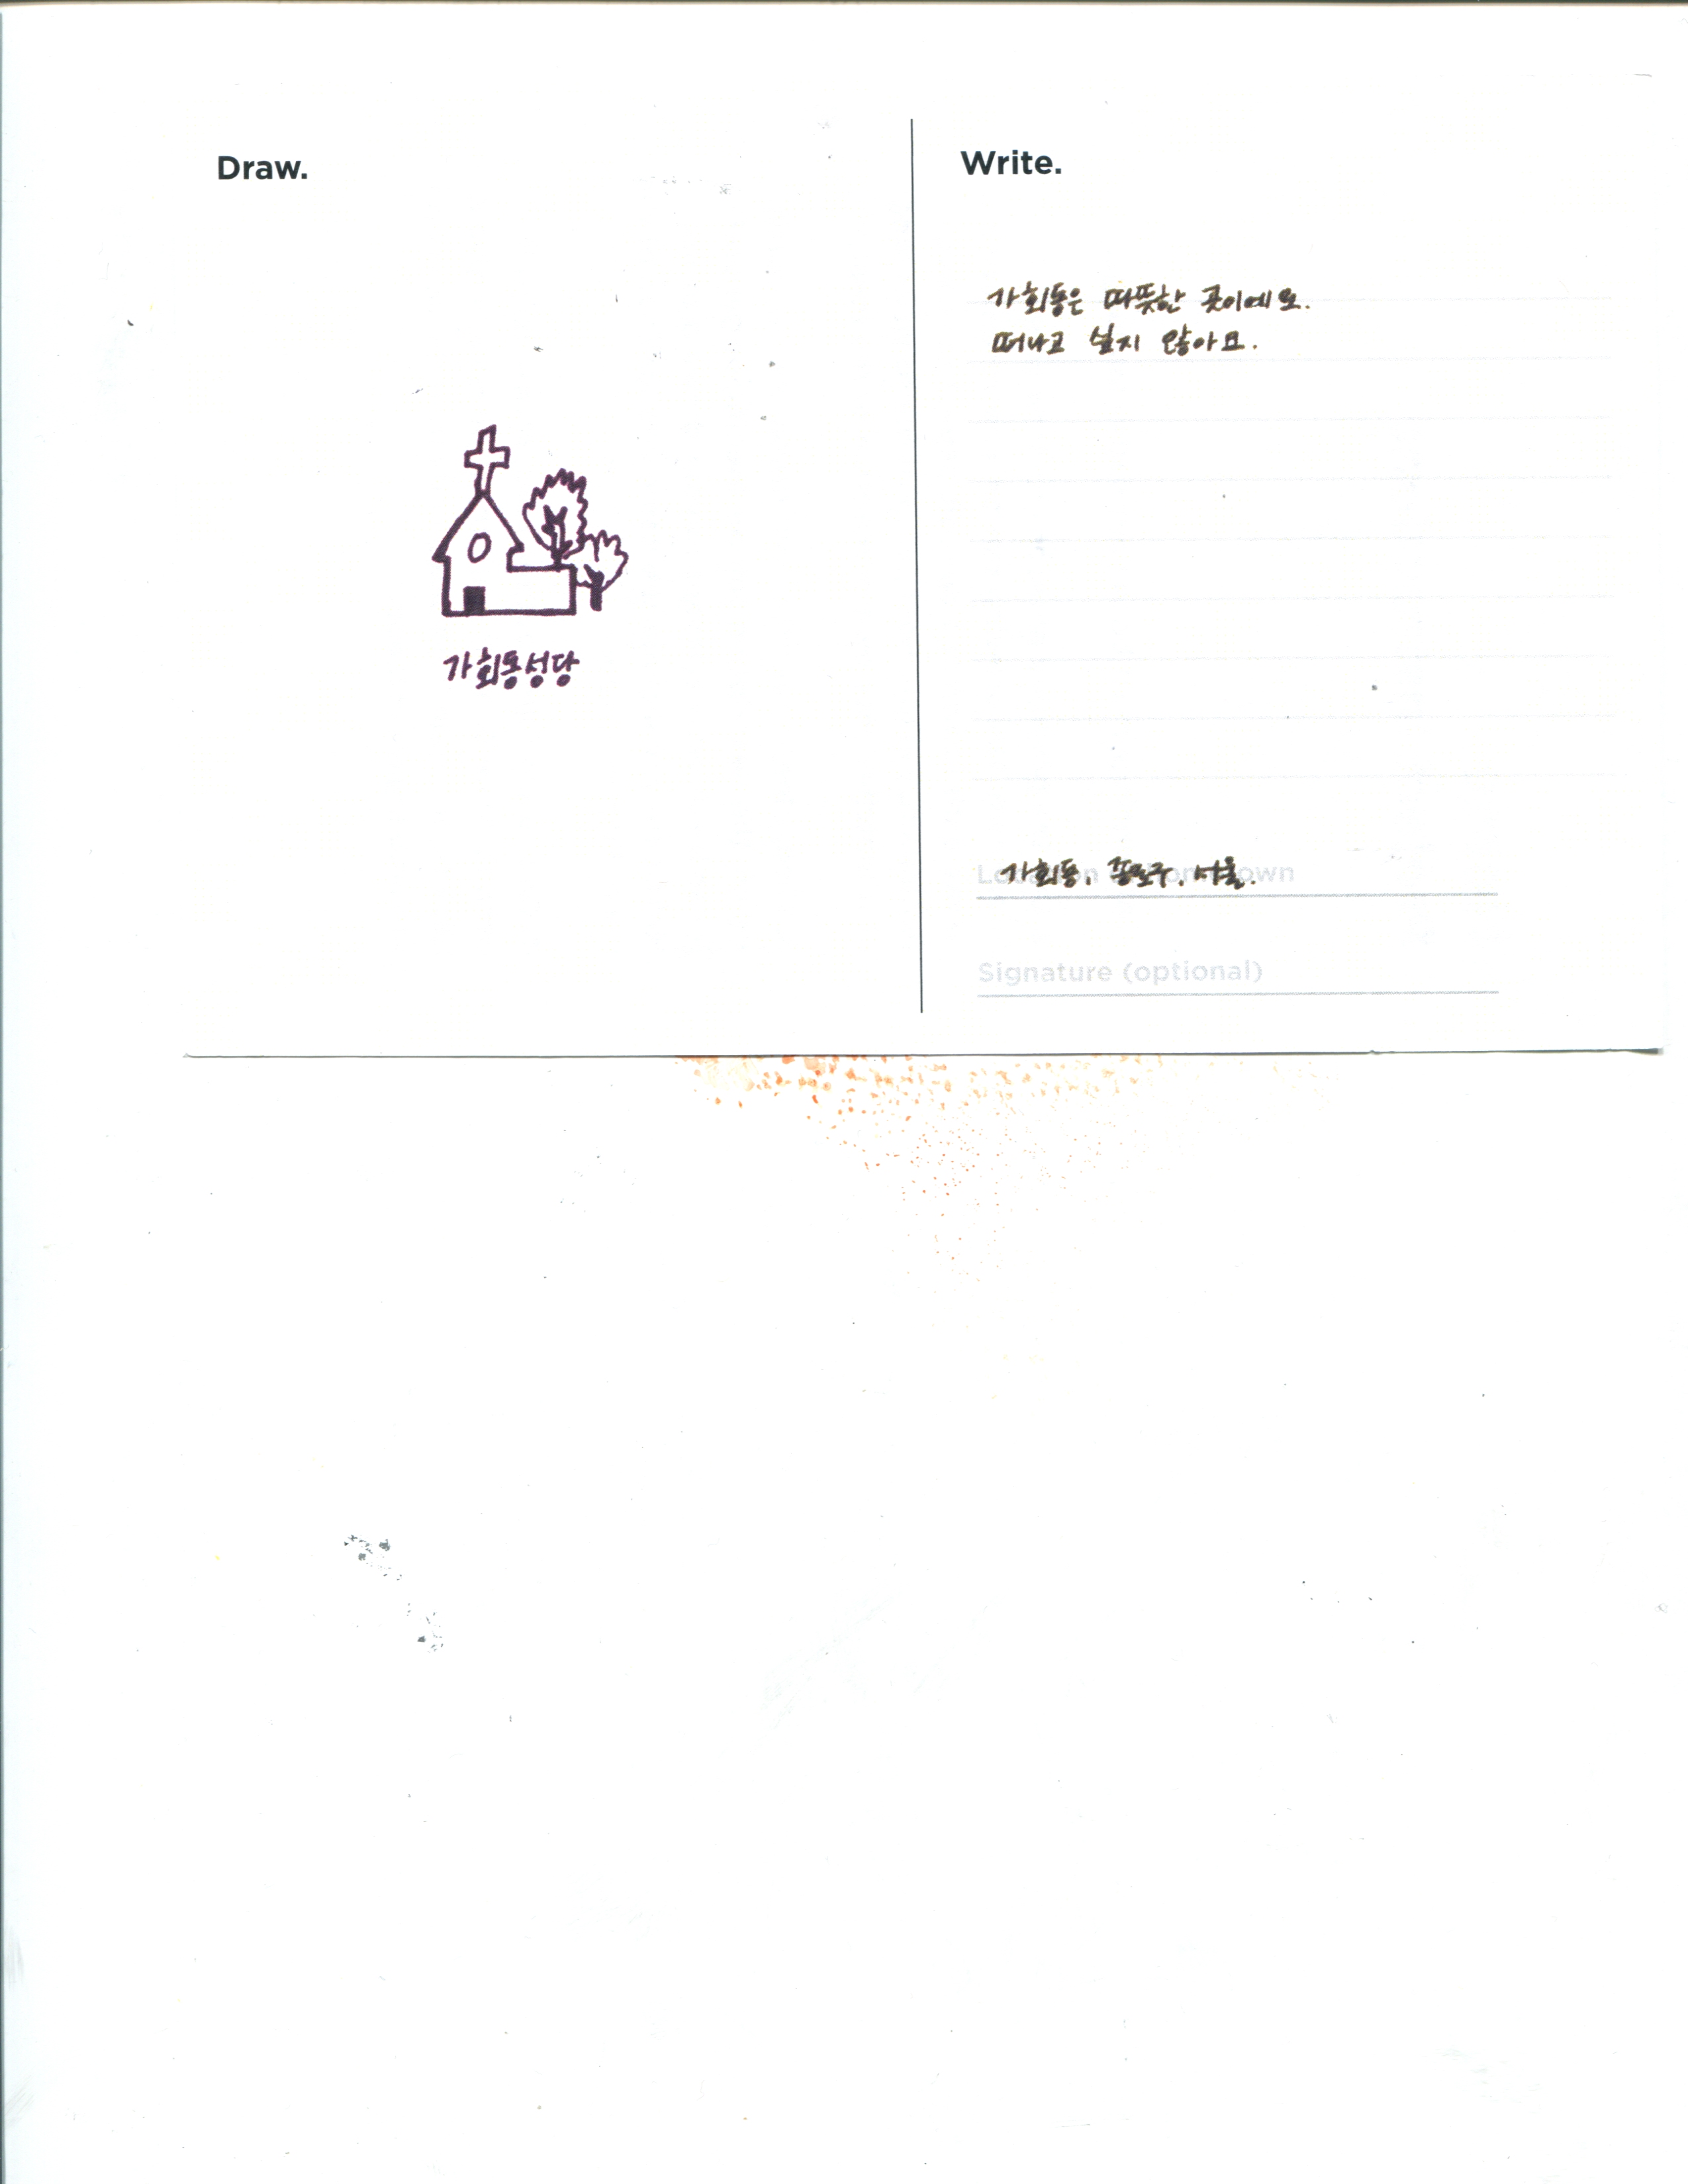 Draw.
가회동성당
Write.
가회동은 따뜻한 곳이에요.
떠나고 싶지 않아요.
가회동, 종로구, 서울.
Signature (optional)